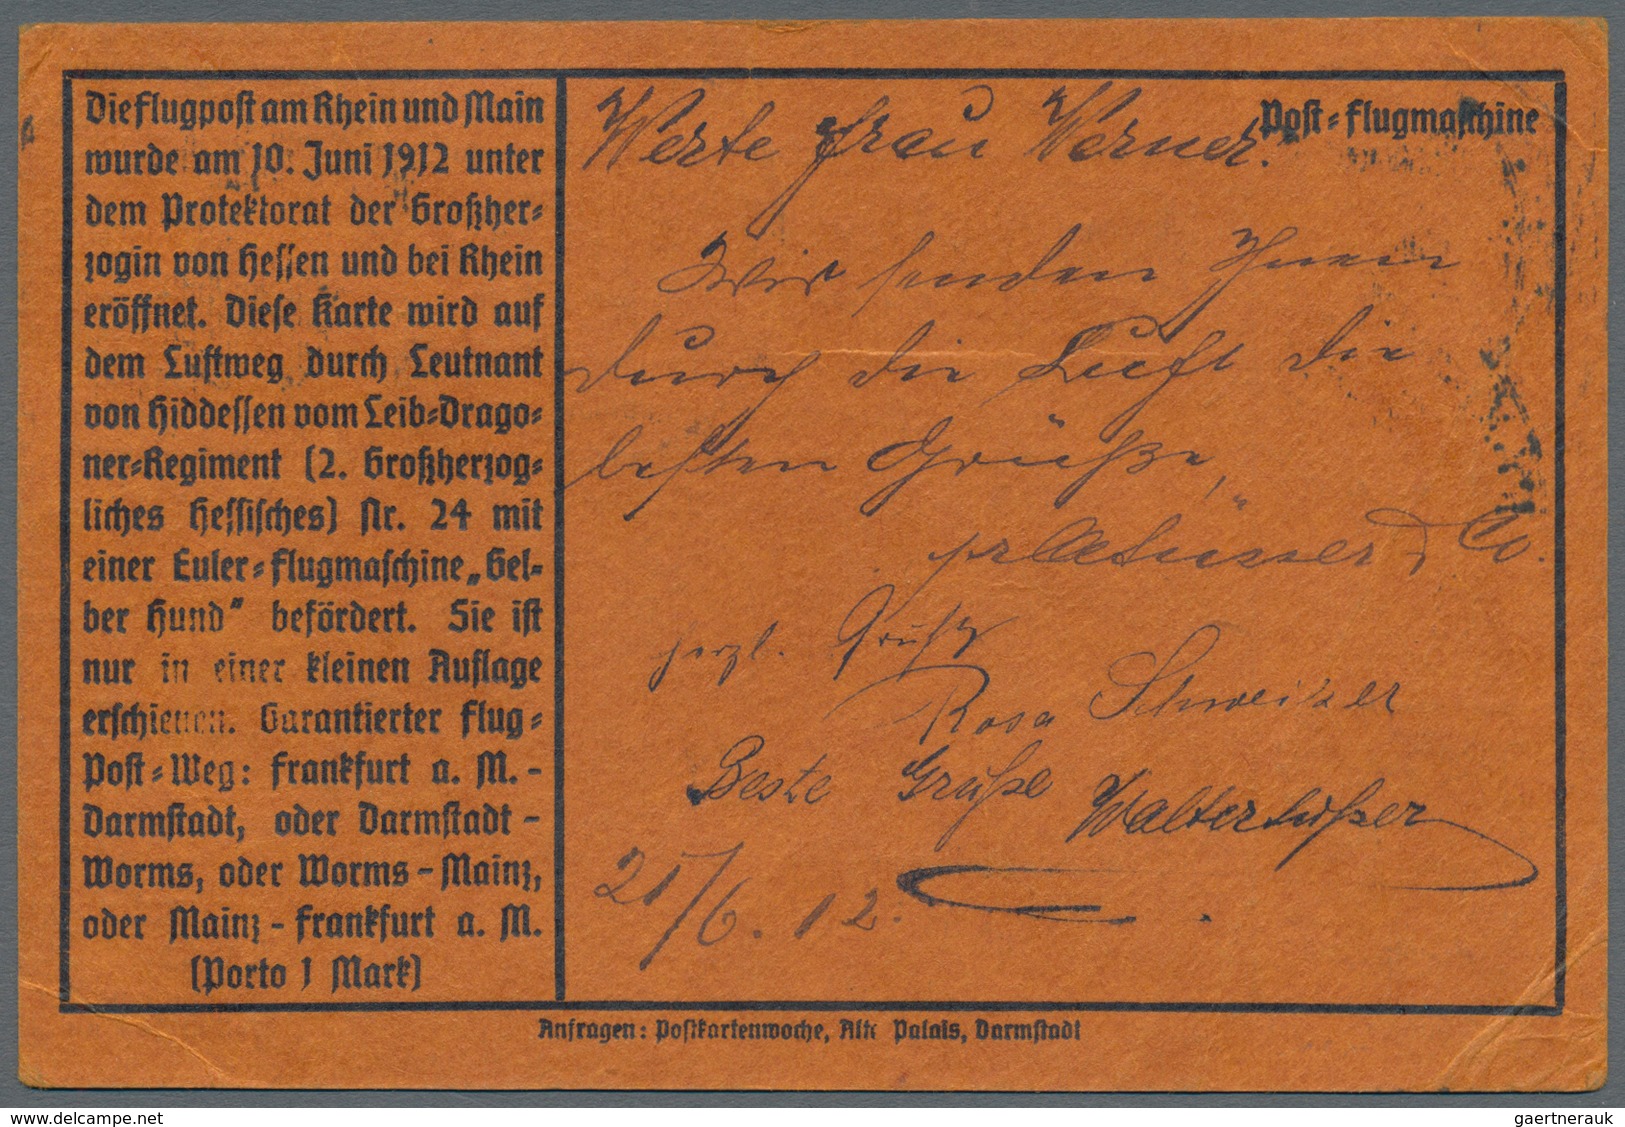 Die Flugpost am Rhein und Main
wurde am 10. Juni 1912 unter
dem Protektorat der Großher-
zogin von Hessen und bei Rhein
eröffnet. Diese Karte wird auf
dem Luftweg durch Leutnant
von Hiddessen vom Leib-Drago-
ner-Regiment (2. Großherzog-
liches Hessisches) Nr. 24 mit
einer Euler-Flugmaschine „Gel-
ber Hund” befördert. Sie ist
nur in einer kleinen Auflage
erschienen. Garantierter Flug-
Post-Weg: Frankfurt a. M.-
Darmstadt, oder Darmstadt-
Worms, oder Worms-Mainz,
oder Mainz-Frankfurt a. M.
(Porto 1 Mark)
Post-Flugmaschine
Werte Frau Werner!
Wir senden Ihnen
durch die Luft die
besten Grüße,
& Co.
herzl. Grüße
Rosa Schweizer
Beste Grüße Walter
21/6. 12.
Anfragen: Postkartenwoche, Alte Palais, Darmstadt
gaertnerauk / www.delcampe.net